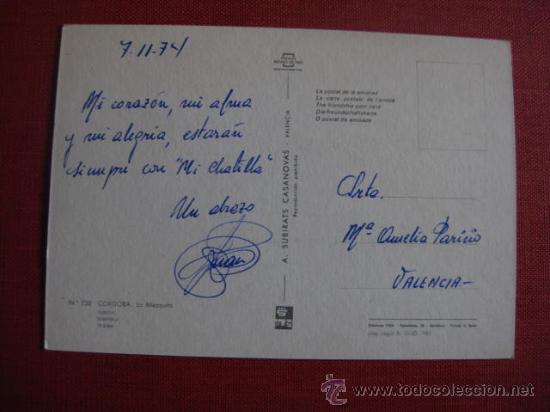 7-11-74
Mi corazón, mi alma
y mi alegria, estarán
siempre con "Mi Chatilla"
Un abrazo
Juan
Nº 730 CORDOBA. La Mezquita
A. SUBIRATS CASANOVAS VALENCIA
La postal de la amistad
La carte postale de l'amitié
The friendship post card
Die freundschaftskarte
O postal da amizade
Srta.
Mª Amelia Pariçio
VALENCIA-
todocoleccion.net